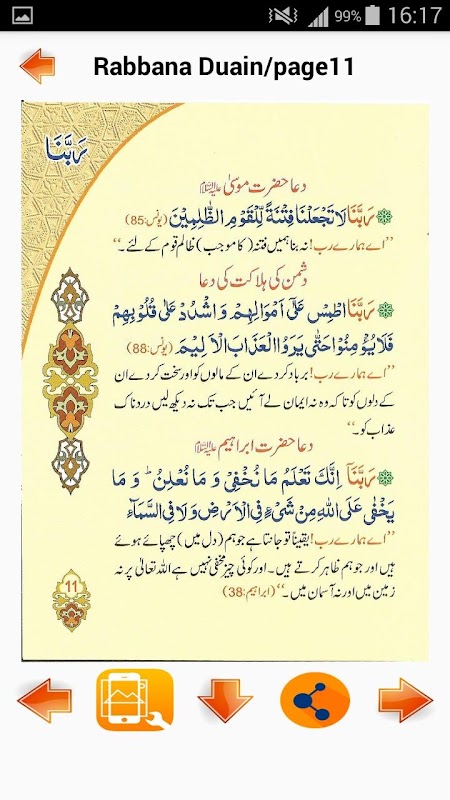 99% 16:17
Rabbana Duain/page11
رَبَّنَا
دعا حضرت موسیٰ علیہ السلام
رَبَّنَا لَا تَجْعَلْنَا فِتْنَةً لِّلْقَوْمِ الظّٰلِمِيْنَ (یونس:85)
’’اے ہمارے رب! نہ بنا ہمیں فتنہ (کا موجب) ظالم قوم کے لئے۔‘‘
دشمن کی ہلاکت کی دعا
رَبَّنَا اطْمِسْ عَلٰٓى اَمْوَالِهِمْ وَ اشْدُدْ عَلٰى قُلُوْبِهِمْ
فَلَا يُؤْمِنُوْا حَتّٰى يَرَوُا الْعَذَابَ الْاَلِيْمَ (یونس:88)
’’اے ہمارے رب! برباد کر دے ان کے مالوں کو اور سخت کر دے ان
کے دلوں کو تاکہ وہ نہ ایمان لے آئیں جب تک نہ دیکھ لیں دردناک
عذاب کو۔‘‘
دعا حضرت ابراہیم علیہ السلام
رَبَّنَآ اِنَّكَ تَعْلَمُ مَا نُخْفِيْ وَ مَا نُعْلِنُ ؕ وَ مَا
يَخْفٰى عَلَى اللّٰهِ مِنْ شَيْءٍ فِي الْاَرْضِ وَلَا فِي السَّمَآءِ
’’اے ہمارے رب! یقیناً تو جانتا ہے جو ہم (دل میں) چھپائے ہوئے
ہیں اور جو ہم ظاہر کرتے ہیں۔ اور کوئی چیز مخفی نہیں ہے اللہ تعالیٰ پر نہ
زمین میں اور نہ آسمان میں۔‘‘ (ابراہیم:38)
11